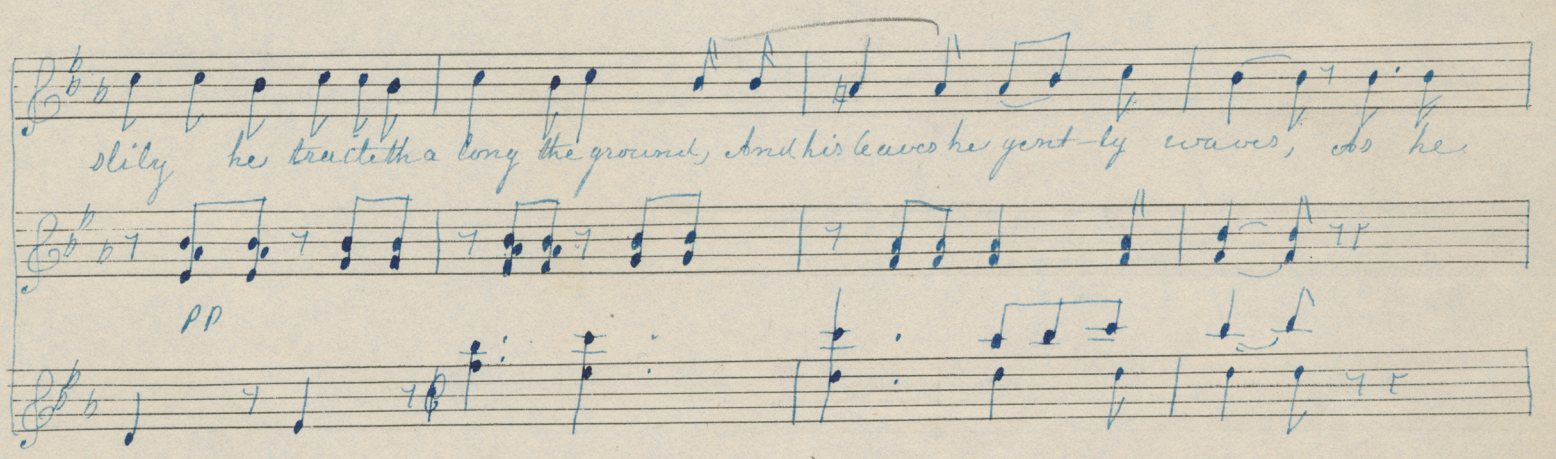 slily he traileth a long the ground, And his leaves he gent-ly waves, As he
pp